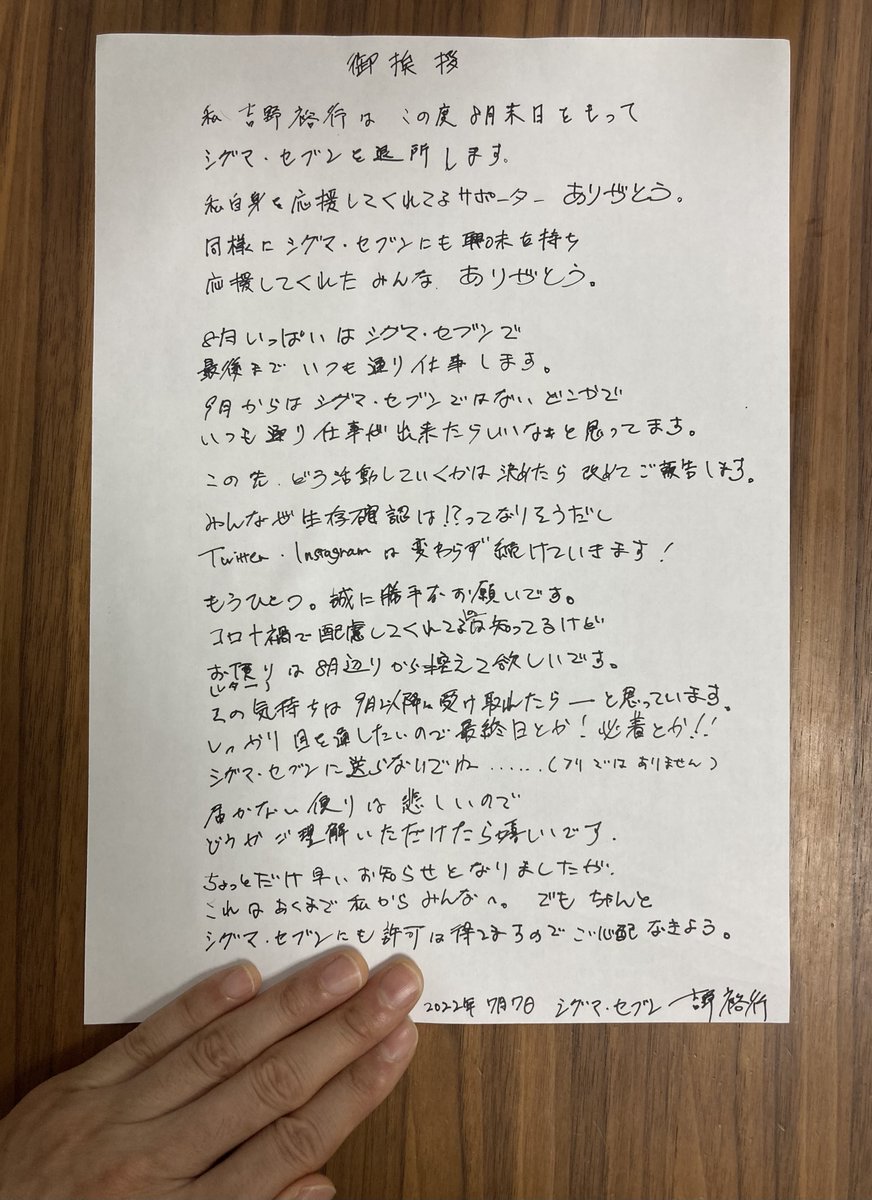 御挨拶
私 吉野裕行は この度 8月末日をもって
シグマ・セブンを退所します。
私自身を応援してくれてるサポーター ありがとう。
同様に シグマ・セブンにも 興味を持ち
応援してくれた みんな ありがとう。
8月いっぱいは シグマ・セブンで
最後まで いつも通り仕事します。
9月からは シグマ・セブンではない どこかで
いつも通り 仕事が出来たらいいなぁと思ってます。
この先、どう活動していくかは 決めたら 改めてご報告します。
みんな 生存確認は!?ってなりそうだし
Twitter・Instagramは変わらず続けていきます!
もうひとつ。誠に勝手なお願いです。
コロナ禍で配慮してくれてるのは知ってるけど
お便り(レター)は 8月辺りから控えて欲しいです。
その気持ちは 9月以降に受け取れたらーと思っています。
しっかり目を通したいので最終日とか!必着とか!!
シグマ・セブンに送らないでね……(フリではありません)
届かない便りは 悲しいので
どうか ご理解いただけたら嬉しいです.
ちょっとだけ早いお知らせとなりましたが.
これは あくまで 私から みんなへ。 でも ちゃんと
シグマ・セブンにも 許可は得てますので ご心配なきよう。
2022年7月7日 シグマ・セブン 吉野裕行